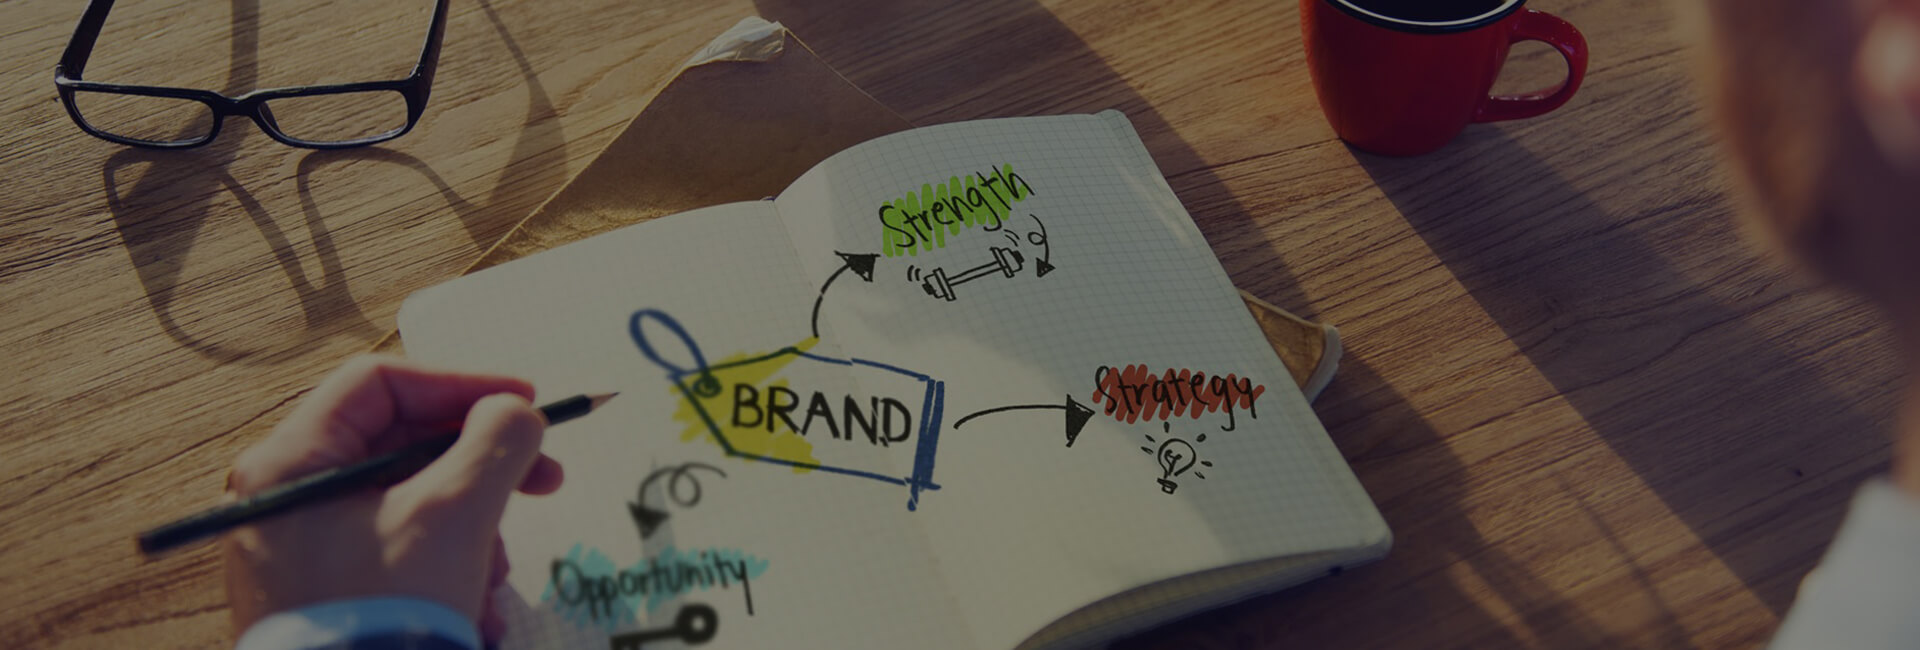 Strength
BRAND
Strategy
Opportunity